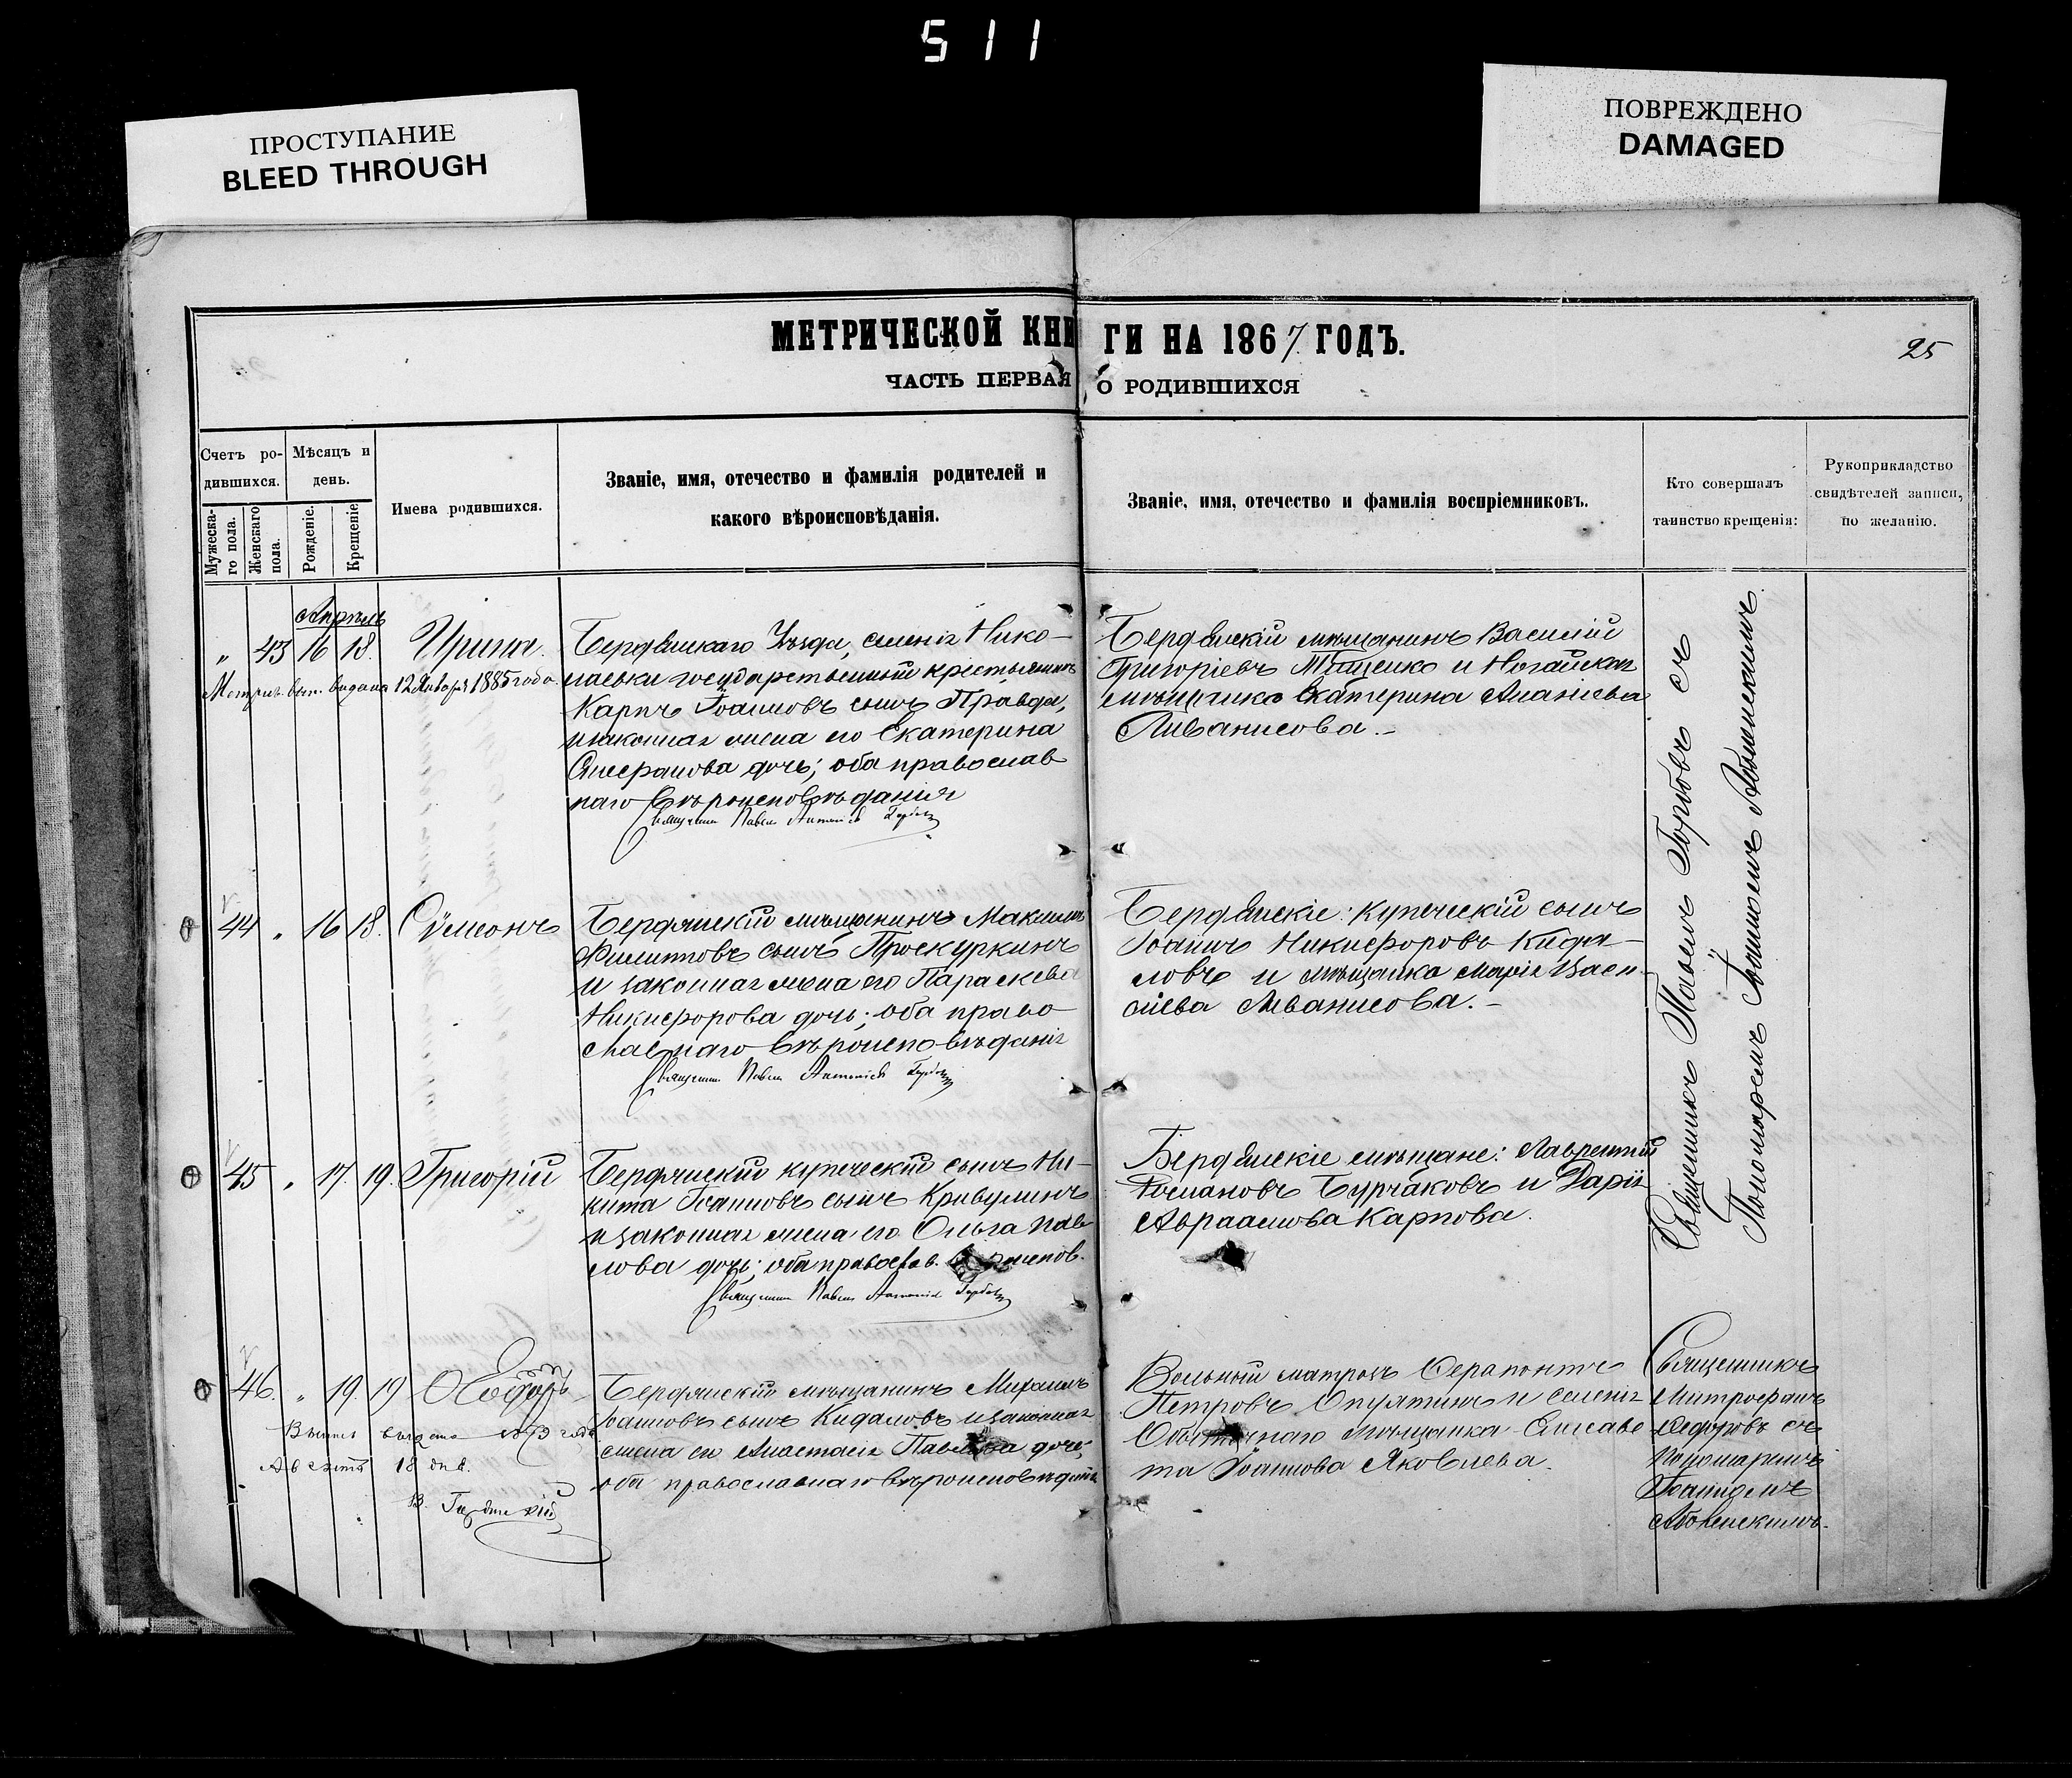 511
ПРОСТУПАНИЕ
BLEED THROUGH
ПОВРЕЖДЕНО
DAMAGED
МЕТРИЧЕСКОЙ КНИГИ НА 1867 ГОДЪ.
25
ЧАСТЬ ПЕРВАЯ О РОДИВШИХСЯ
Счетъ ро-
дившихся.
Мужеска-
го пола.
Женскаго
пола.
Мѣсяцъ и
день.
Рожденіе.
Крещеніе.
Имена родившихся.
Званіе, имя, отечество и фамилія родителей и
какого вѣроисповѣданія.
Званіе, имя, отечество и фамилія воспріемниковъ.
Кто совершалъ
таинство крещенія:
Рукоприкладство
свидѣтелей записи,
по желанію.
Апрѣль
" 43 16 18. Ирина.
Метрич. вып. видана 12 Января 1885 года.
Бердянскаго Уѣзда, селенія Нико-
лаевки государственный крестьянинъ
Карпъ Іоанновъ сынъ Правда,
и законная жена его Екатерина
дочь; оба православ
наго вѣроисповѣданія
Священник Павел Антониев Горбов
Бердянскій мѣщанинъ Василій
Григоріевъ Тищенко и Ногайская
мѣщанка Екатерина Ананіева
Ливанисова.-
44 " 16 18. Сѵмеонъ
Бердянскій мѣщанинъ Максимъ
Филипповъ сынъ Проскуркинъ
и законная жена его Параскева
Никифорова дочь; оба право
славнаго вѣроисповѣданія
Священник Павел Антониев Горбов
Бердянскіе: купеческій сынъ
Іоаннъ Никифоровъ Кида-
ловъ и мѣщанка Марія Васи-
ліева Ливанисова.-
45 " 17. 19. Григорій
Бердянскій купеческій сынъ Ни-
кита Іоанновъ сынъ Кривулинъ
и законная жена его Ольга Пав-
лова дочь; оба православ. вѣроиспов.
Священник Павел Антониев Горбов
Бердянскіе мѣщане: Лаврентій
Романовъ Бурчаковъ и Дарія
Авраамова Карпова.
Священникъ Павелъ Горбовъ съ
Пономаремъ Іоанномъ
46. " 19. 19 Ѳеодоръ
Выпись выдана 1873 года
Августа 18 дня.
Бердянскій мѣщанинъ Михаилъ
Іоанновъ сынъ Кидаловъ и законная
жена его Анастасія Павлова дочь;
оба православнаго вѣроисповѣданія
Вольный матросъ Ферапонтъ
Петровъ Опуятинъ и селенія
мѣщанка Елисаве
та Іоаннова Яковлева.
Священникъ
Митрофанъ
Ѳедоровъ съ
Пономаремъ
Іоанномъ